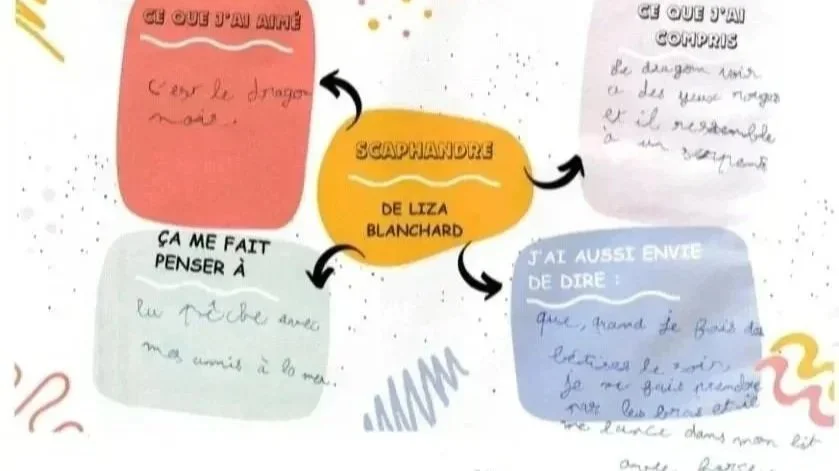 CE QUE J'AI AIMÉ
C'est le dragon
noir.
CE QUE J'AI
COMPRIS
Le dragon noir
a des yeux rouges
et il ressemble
à un serpent
SCAPHANDRE
DE LIZA
BLANCHARD
ÇA ME FAIT
PENSER À
la pêche avec
mes amis à la mer.
J'AI AUSSI ENVIE
DE DIRE :
que, quand je fais des
bêtises le soir,
je me fais prendre
par les bras et il
me lance dans mon lit
avec force